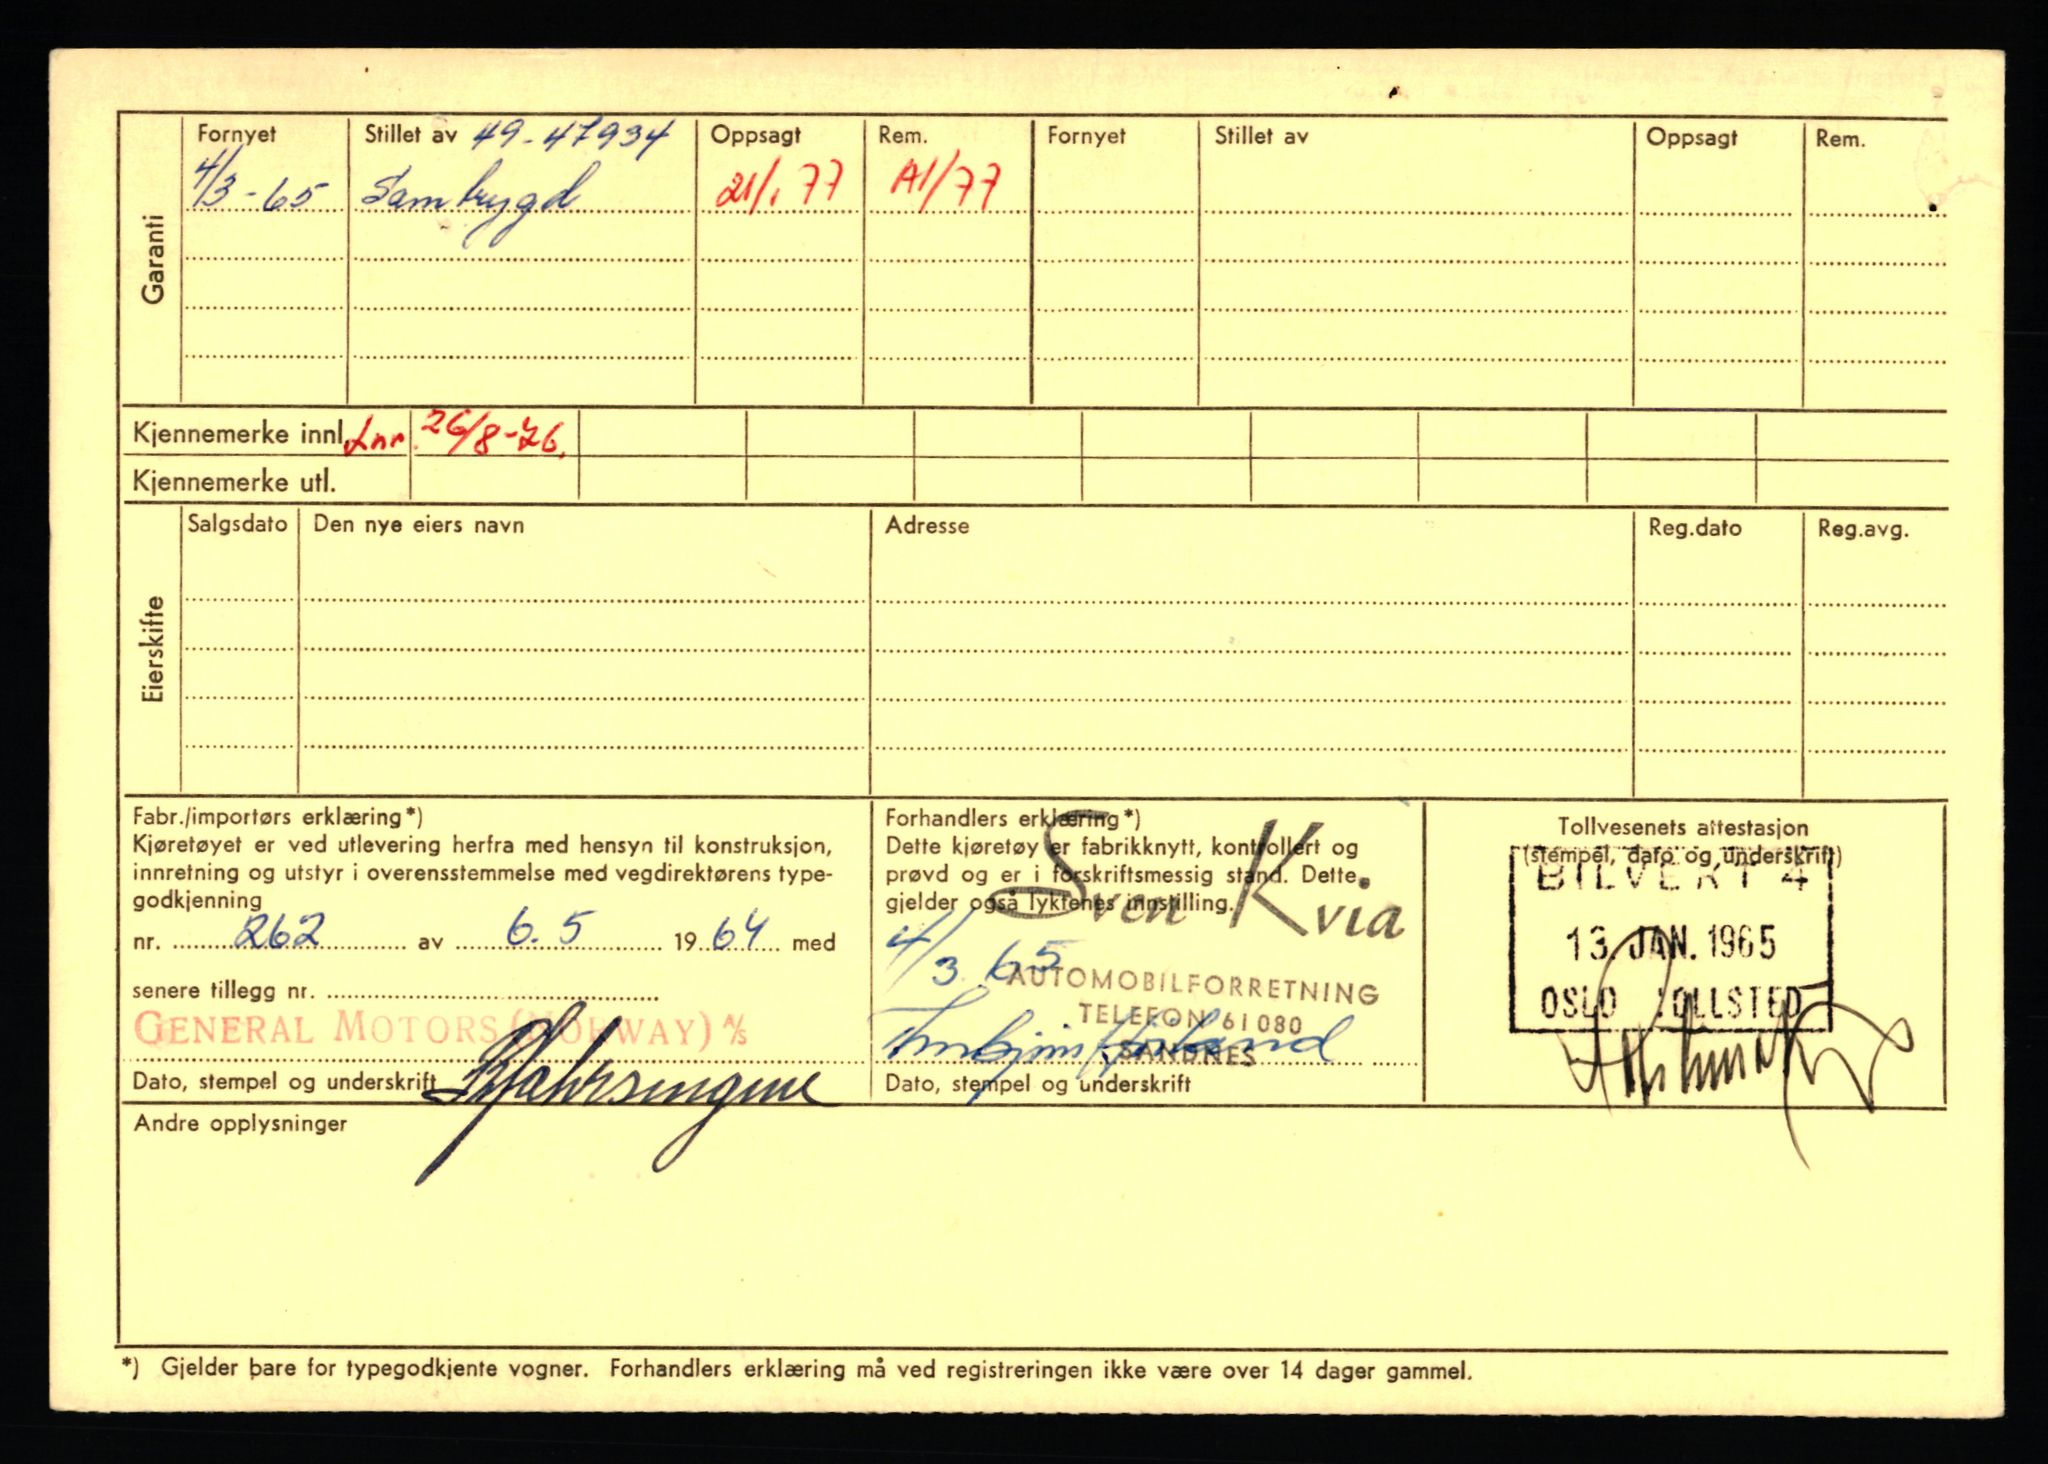 Garanti
Fornyet Stillet av 49-47934 Oppsagt Rem. Fornyet Stillet av Oppsagt Rem.
4/3-65 Sambygd 21/1 77 A1/77
Kjennemerke innl. Lnr 26/8-76.
Kjennemerke utl.
Eierskifte
Salgsdato Den nye eiers navn Adresse Reg.dato Reg.avg.
Fabr./importørs erklæring*)
Kjøretøyet er ved utlevering herfra med hensyn til konstruksjon,
innretning og utstyr i overensstemmelse med vegdirektørens type-
godkjenning
nr. 262 av 6.5 1964 med
senere tillegg nr.
GENERAL MOTORS (NORWAY) A/S
Dato, stempel og underskrift
Forhandlers erklæring*)
Dette kjøretøy er fabrikknytt, kontrollert og
prøvd og er i forskriftsmessig stand. Dette
gjelder også lyktenes innstilling.
Sven Kvia
4/3 65
AUTOMOBILFORRETNING
TELEFON 61080
SANDNES
Dato, stempel og underskrift
Tollvesenets attestasjon
(stempel, dato og underskrift)
BILVERT 4
13. JAN. 1965
OSLO TOLLSTED
Andre opplysninger
*) Gjelder bare for typegodkjente vogner. Forhandlers erklæring må ved registreringen ikke være over 14 dager gammel.